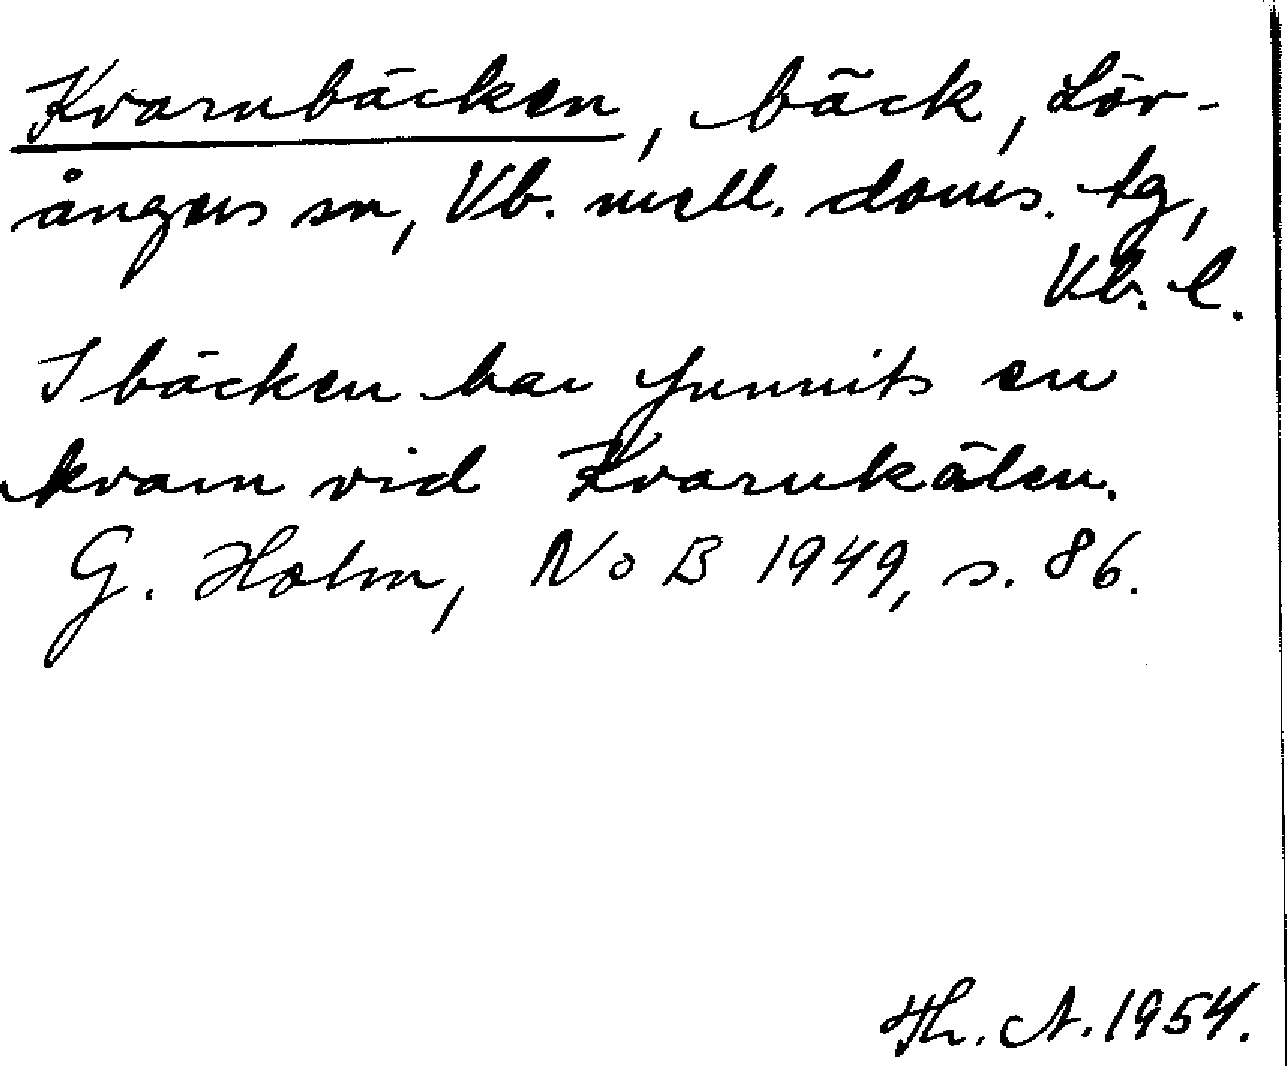 Kvarnbäcken, bäck, Löv-
ångers sn, Vb. mell. doms. tg,
Vb. l.
I bäcken har funnits en
kvarn vid Kvarnkälen.
G. Holm, NoB 1949, s. 86.
Th. A. 1954.